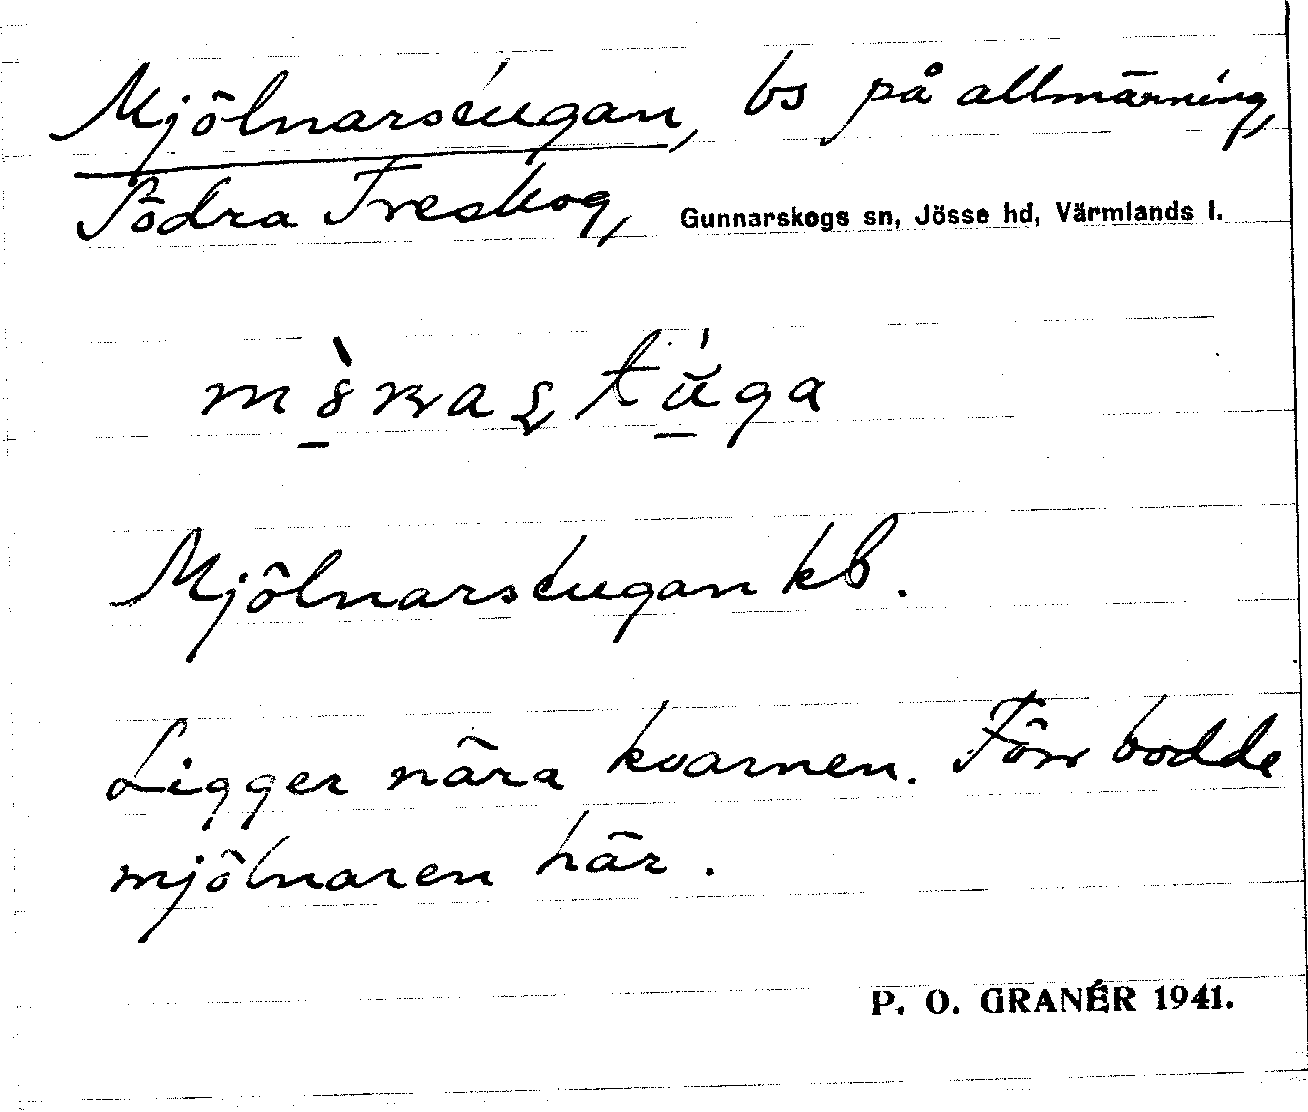 Mjölnarstugan, bs på allmänning,
Södra Treskog, Gunnarskogs sn, Jösse hd, Värmlands l.
Mjölnarstugan kb.
Ligger nära kvarnen. Förr bodde
mjölnaren här.
P. O. GRANÉR 1941.